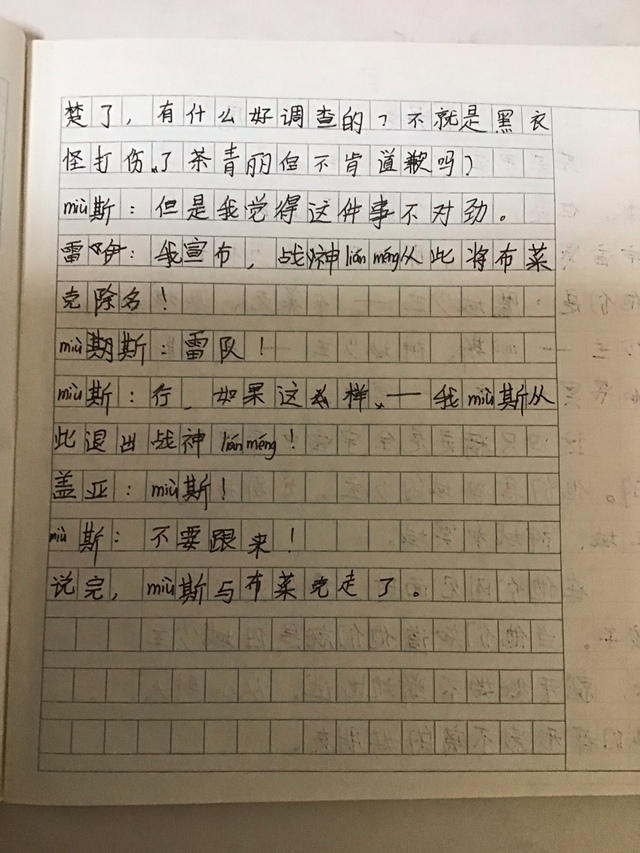 楚了，有什么好调查的？不就是黑衣
怪打伤了茶青丽但不肯道歉吗？
miù斯：但是我觉得这件事不对劲。
雷伊：我宣布，战神lián méng从此将布莱
克除名！
miù斯：雷队！
miù斯：行，如果这样——我miù斯从
此退出战神lián méng！
盖亚：miù斯！
miù斯：不要跟来！
说完，miù斯与布莱克走了。